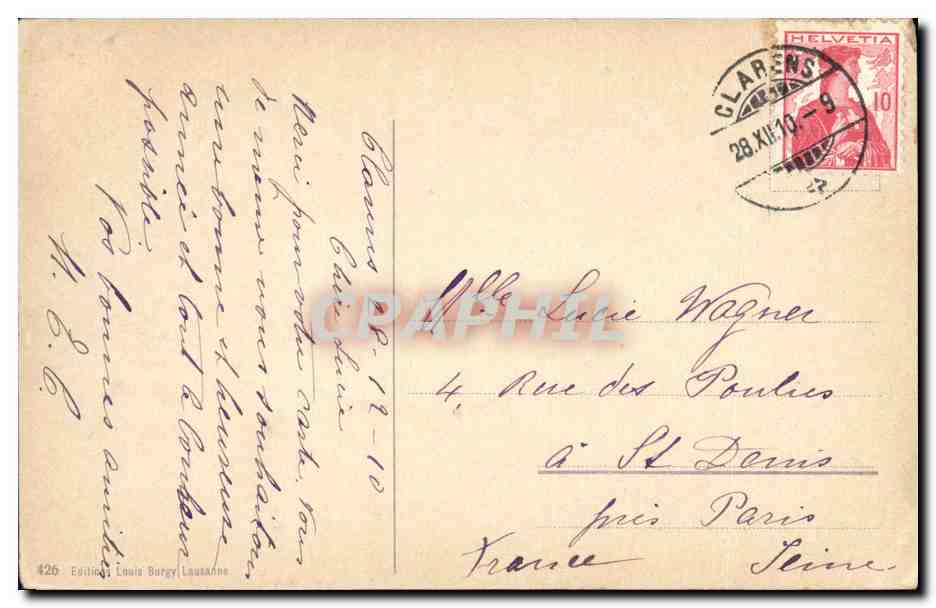 Clarens 28-12-10
Chère Lucie
Merci pour votre carte. Vous
de même vous souhaitons
une bonne et heureuse
année et tout le bonheur
possible.
Vos bonnes amitiés
HELVETIA
10
CLARENS
28.XII.10.-9
Mlle Lucie Wagner
4, Rue des Poulies
à St Denis
près Paris
France Seine
CPARHIL
426 Editions Louis Burgy, Lausanne